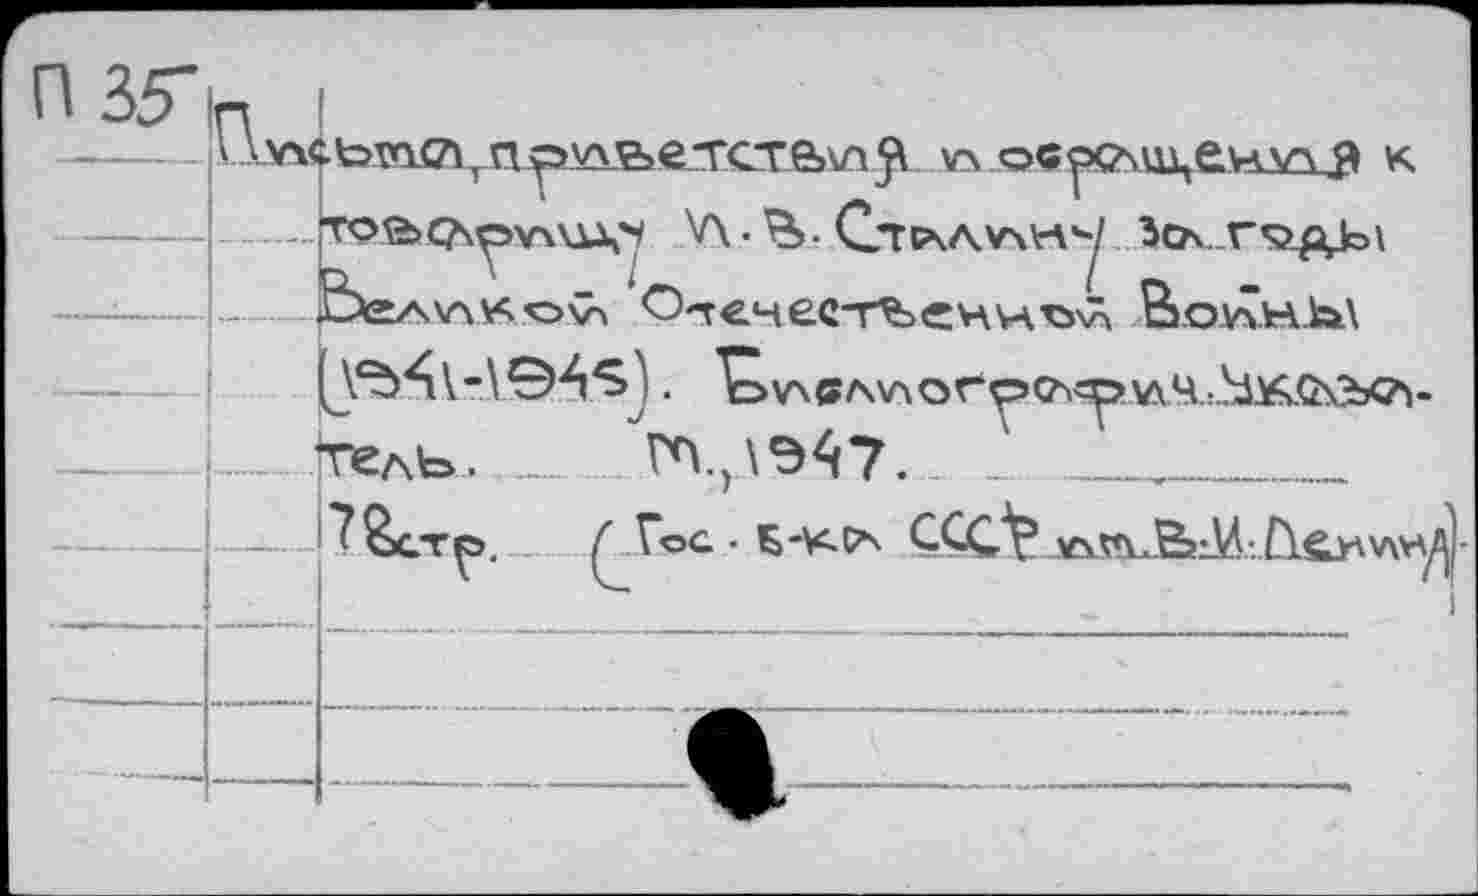 П 35
Письма, приветствия и обращения к
товарищу И. В. Сталину за годы
Великой Отечественной Войны
(1941-1945). Библиографич. Указа-
тель. М., 1947.
78стр. (Гос. б-ка СССР им. В. И. Ленина)